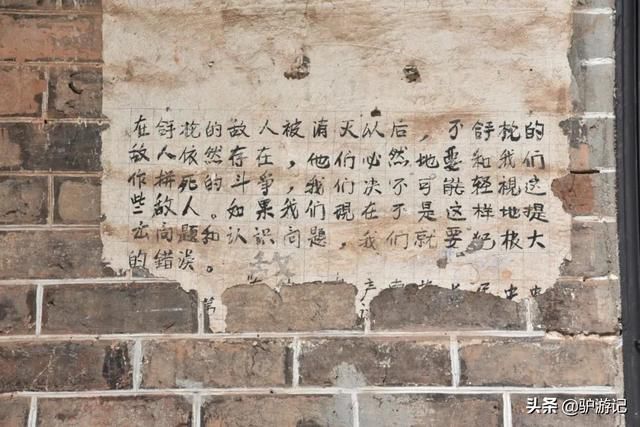 在拿枪的敌人被消灭以后，不拿枪的
敌人依然存在，他们必然地要和我们
作拼死的斗争，我们决不可能轻視这
些敌人。如果我们現在不是这样地提
出问题和认识问题，我们就要犯极大
的錯误。
产 中央
第
头条 @驴游记